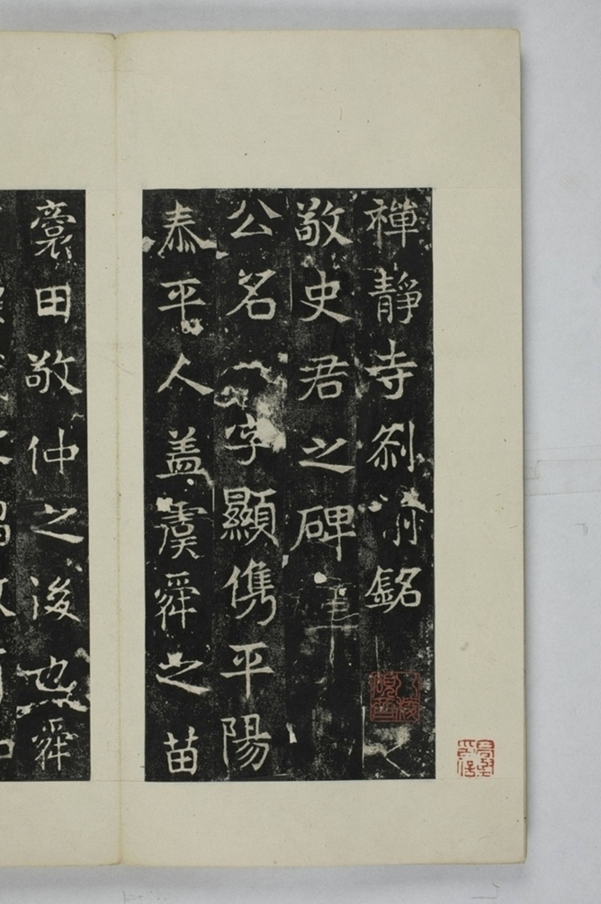 禪靜寺刹前銘
敬史君之碑
公名字顯儁平陽
泰平人盖虞舜之苗
裔田敬仲之後也舜